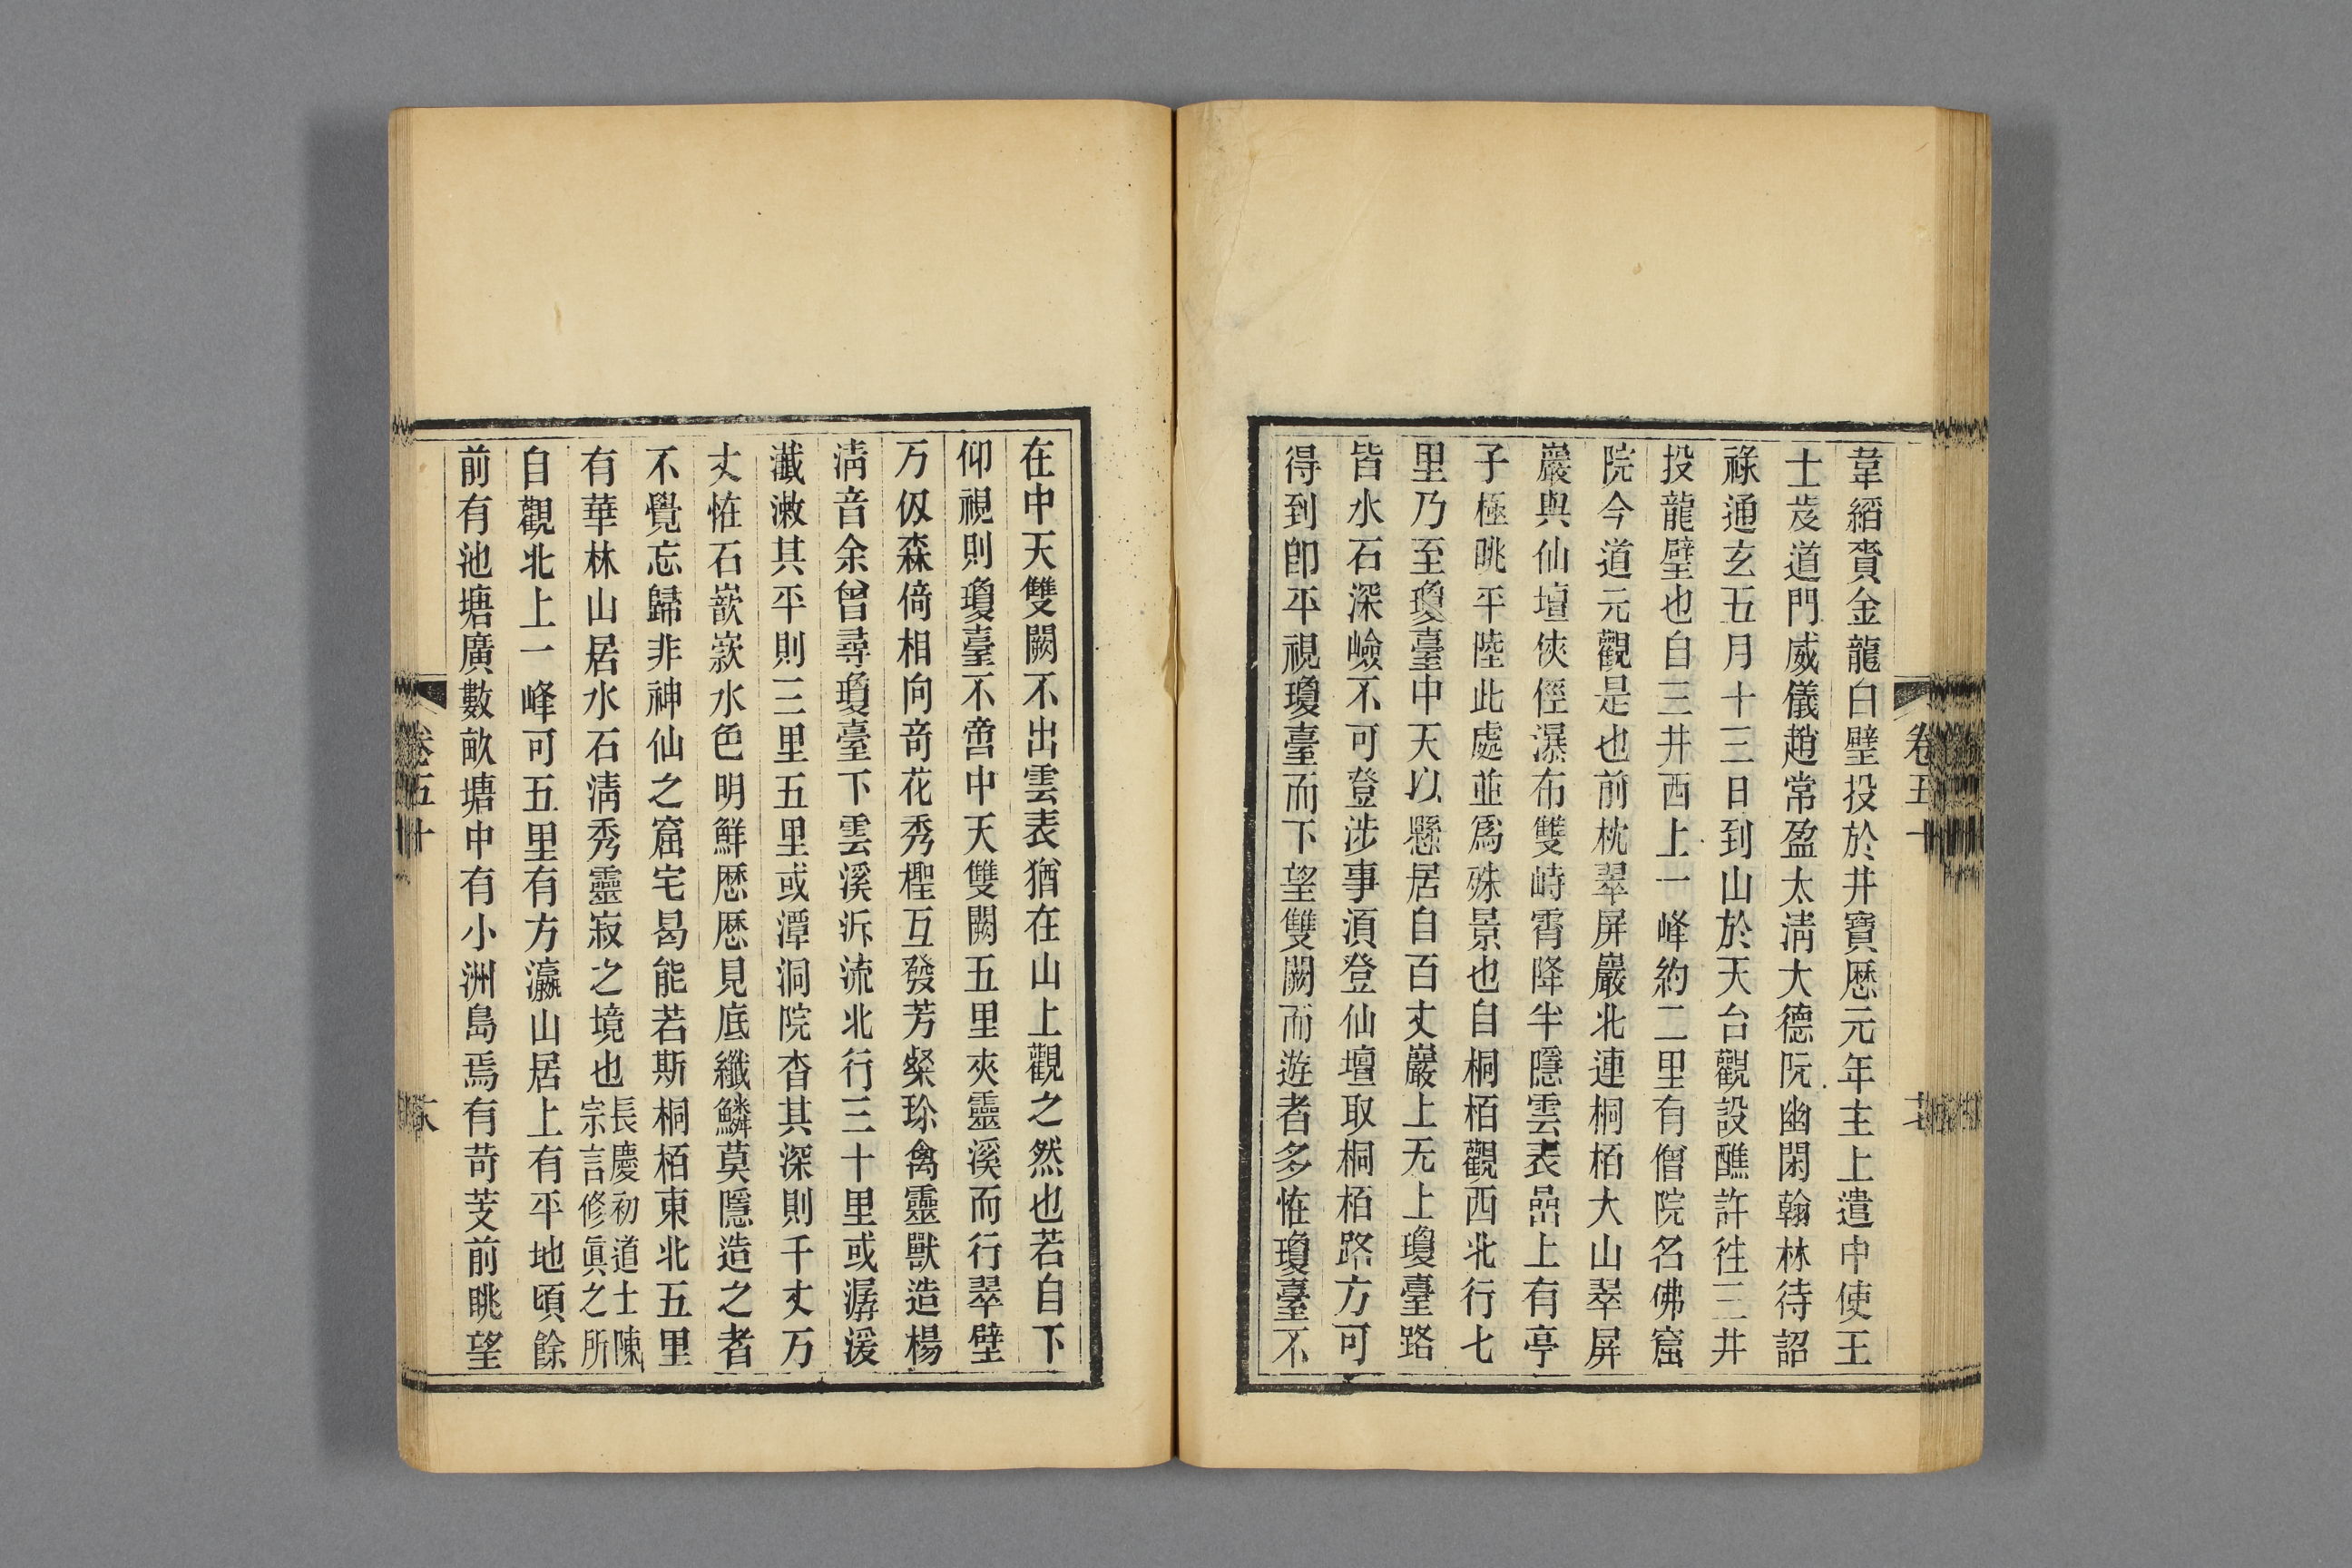 韋縚賫金龍白璧投於井寶歷元年主上遣中使王
士岌道門威儀趙常盈太淸大德阮幽閑翰林待詔
祿通玄五月十三日到山於天台觀設醮許往三井
投龍璧也自三井西上一峰約二里有僧院名佛窟
院今道元觀是也前枕翠屏巖北連桐栢大山翠屏
巖與仙壇俠徑瀑布雙峙霄降半隱雲表嵓上有亭
子極眺平陸此處並爲殊景也自桐栢觀西北行七
里乃至瓊臺中天以懸居自百丈巖上无上瓊臺路
皆水石深嶮不可登涉事須登仙壇取桐栢路方可
得到卽平視瓊臺而下望雙闕而遊者多恠瓊臺不
卷五十
在中天雙闕不出雲表猶在山上觀之然也若自下
仰視則瓊臺不啻中天雙闕五里夾靈溪而行翠壁
万仭森倚相向奇花秀檉互發芳粲珎禽靈獸造楊
淸音余曾尋瓊臺下雲溪泝流北行三十里或潺湲
瀸潄其平則三里五里或潭洞院杳其深則千丈万
丈恠石嶔崟水色明鮮歷歷見底纖鱗莫隱造之者
不覺忘歸非神仙之窟宅曷能若斯桐栢東北五里
有華林山居水石淸秀靈寂之境也長慶初道士陳宗言修眞之所
自觀北上一峰可五里有方瀛山居上有平地頃餘
前有池塘廣數畝塘中有小洲島焉有荷芰前眺望
卷五十